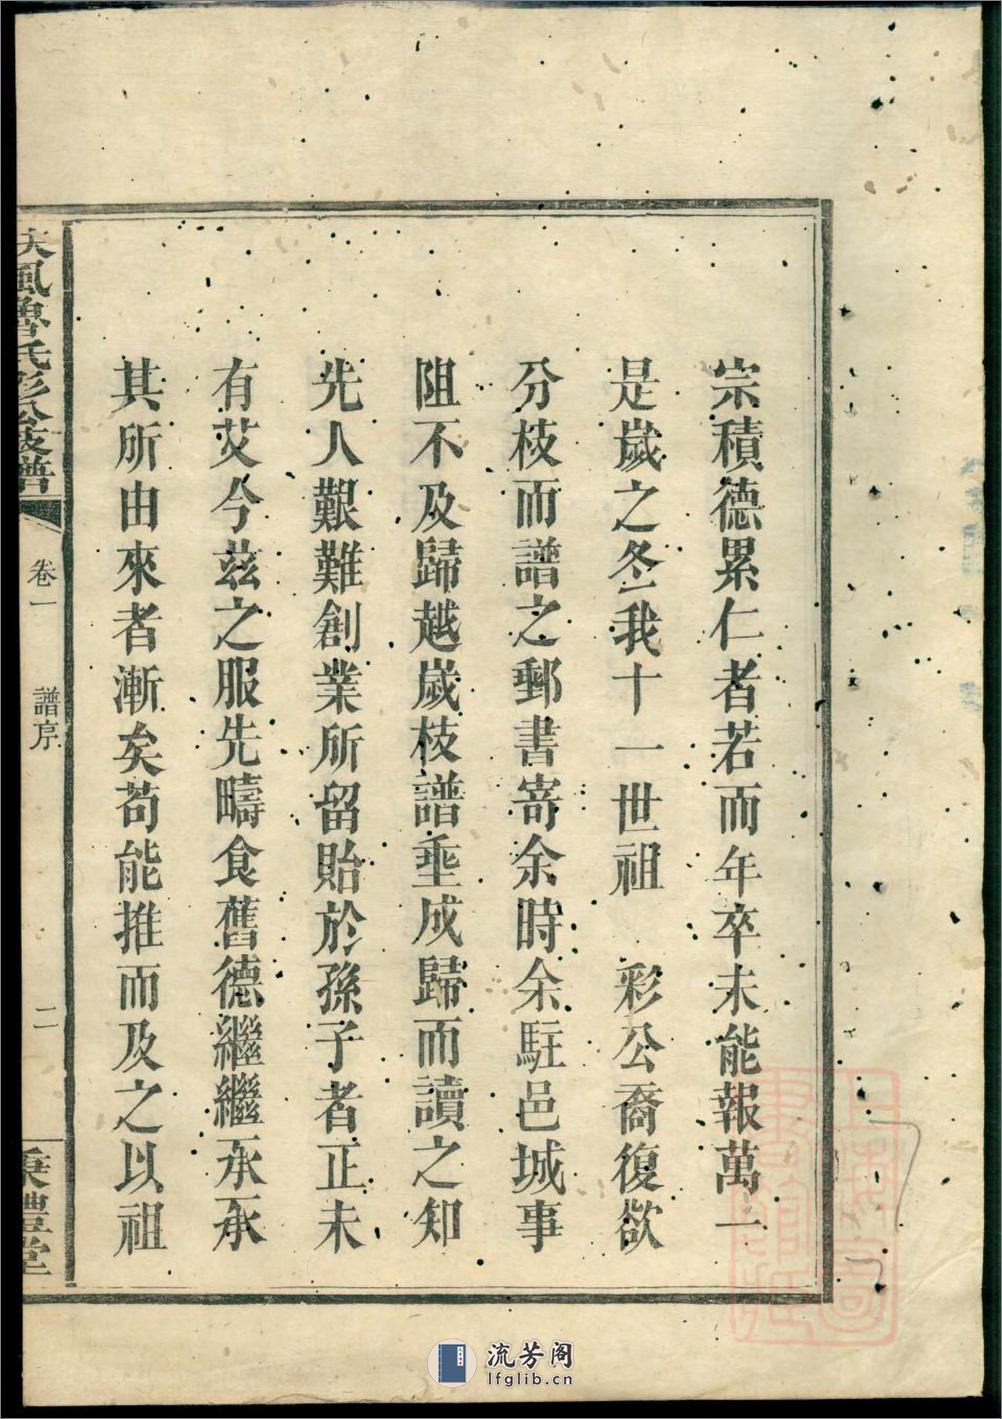 宗積德累仁者若而年卒未能報萬一
是嵗之冬我十一世祖　彩公裔復欲
分枝而譜之郵書寄余時余駐邑城事
阻不及歸越嵗枝譜垂成歸而讀之知
先人艱難創業所留貽於孫子者正未
有艾今茲之服先疇食舊德繼繼承承
其所由來者漸矣苟能推而及之以祖
扶風魯氏彩公支譜
卷一
譜序
二
秉禮堂
上海圖書館藏
流芳阁
lfglib.cn